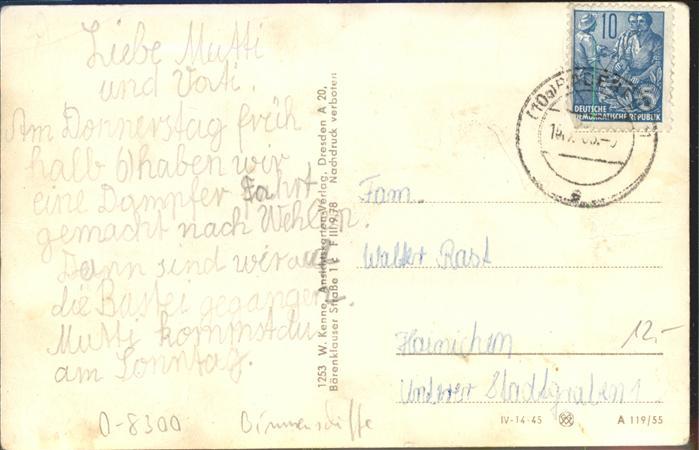 Liebe Mutti
und Vati.
Am Donnerstag früh
halb 6 haben wir
eine Dampfer fahrt
gemacht nach Wehlen.
Dann sind wir auf
die Bastei gegangen.
Mutti kommst du
am Sonntag.
D-8300 Binnenschiffe
1253 W. Kenne, Ansichtskarten-Verlag, Dresden A 20,
Bärenklauser Straße 1 c F III 9 78 Nachdruck verboten
10
DEUTSCHE
DEMOKRATISCHE REPUBLIK
(10a)
Fam.
Walter Rast
Hainichen
Unterer Stadtgraben 1
12,-
IV-14-45 A 119/55